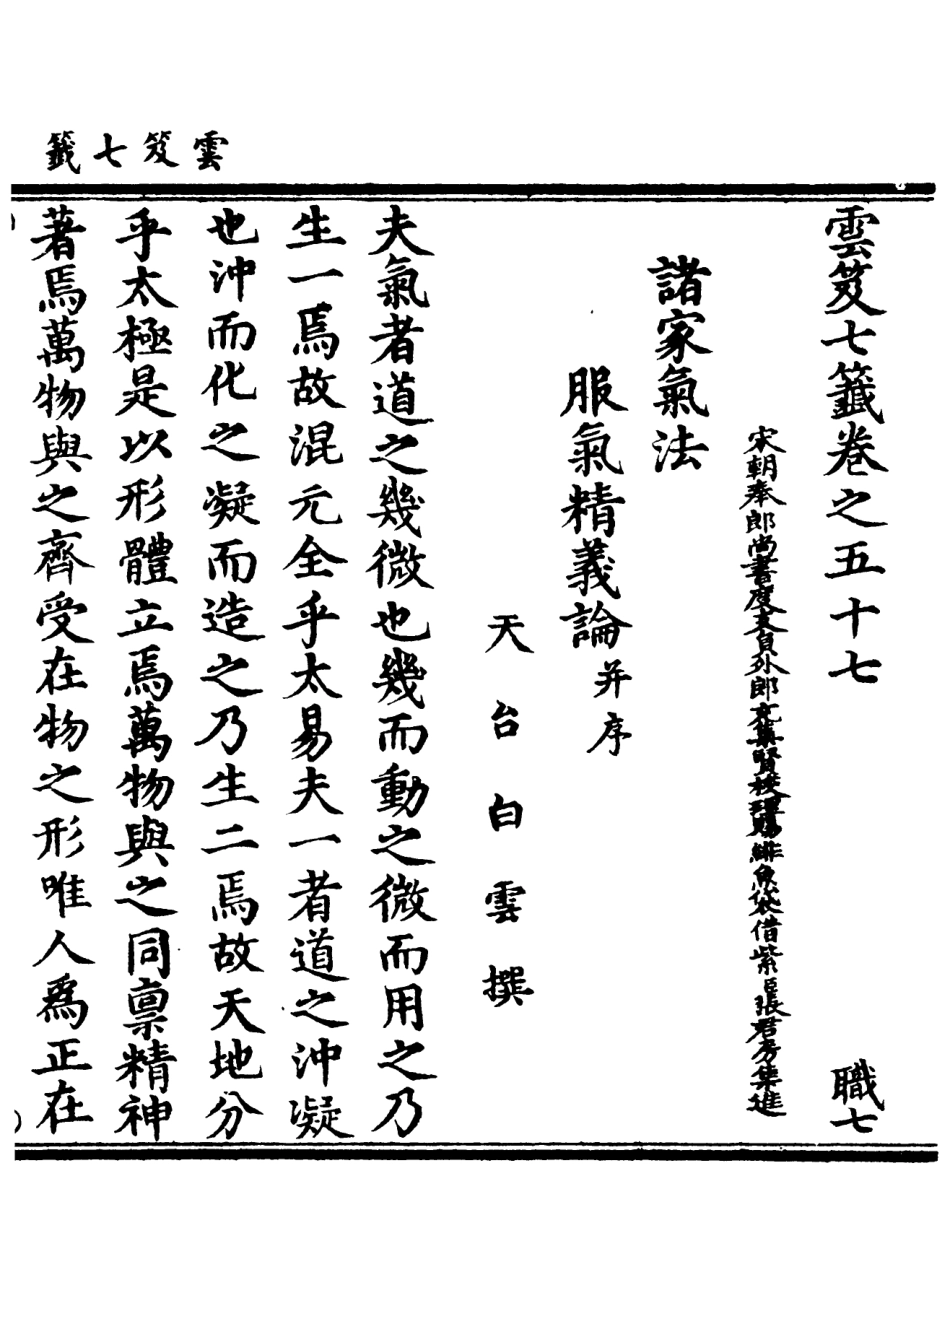 雲笈七籤
雲笈七籤卷之五十七 職七
宋朝奉郎尚書度支員外郎充集賢校理賜緋魚袋借紫臣張君房集進
諸家氣法
服氣精義論并序
天台白雲撰
夫氣者道之幾微也幾而動之微而用之乃
生一焉故混元全乎太易夫一者道之沖凝
也沖而化之凝而造之乃生二焉故天地分
乎太極是以形體立焉萬物與之同禀精神
著焉萬物與之齊受在物之形唯人爲正在